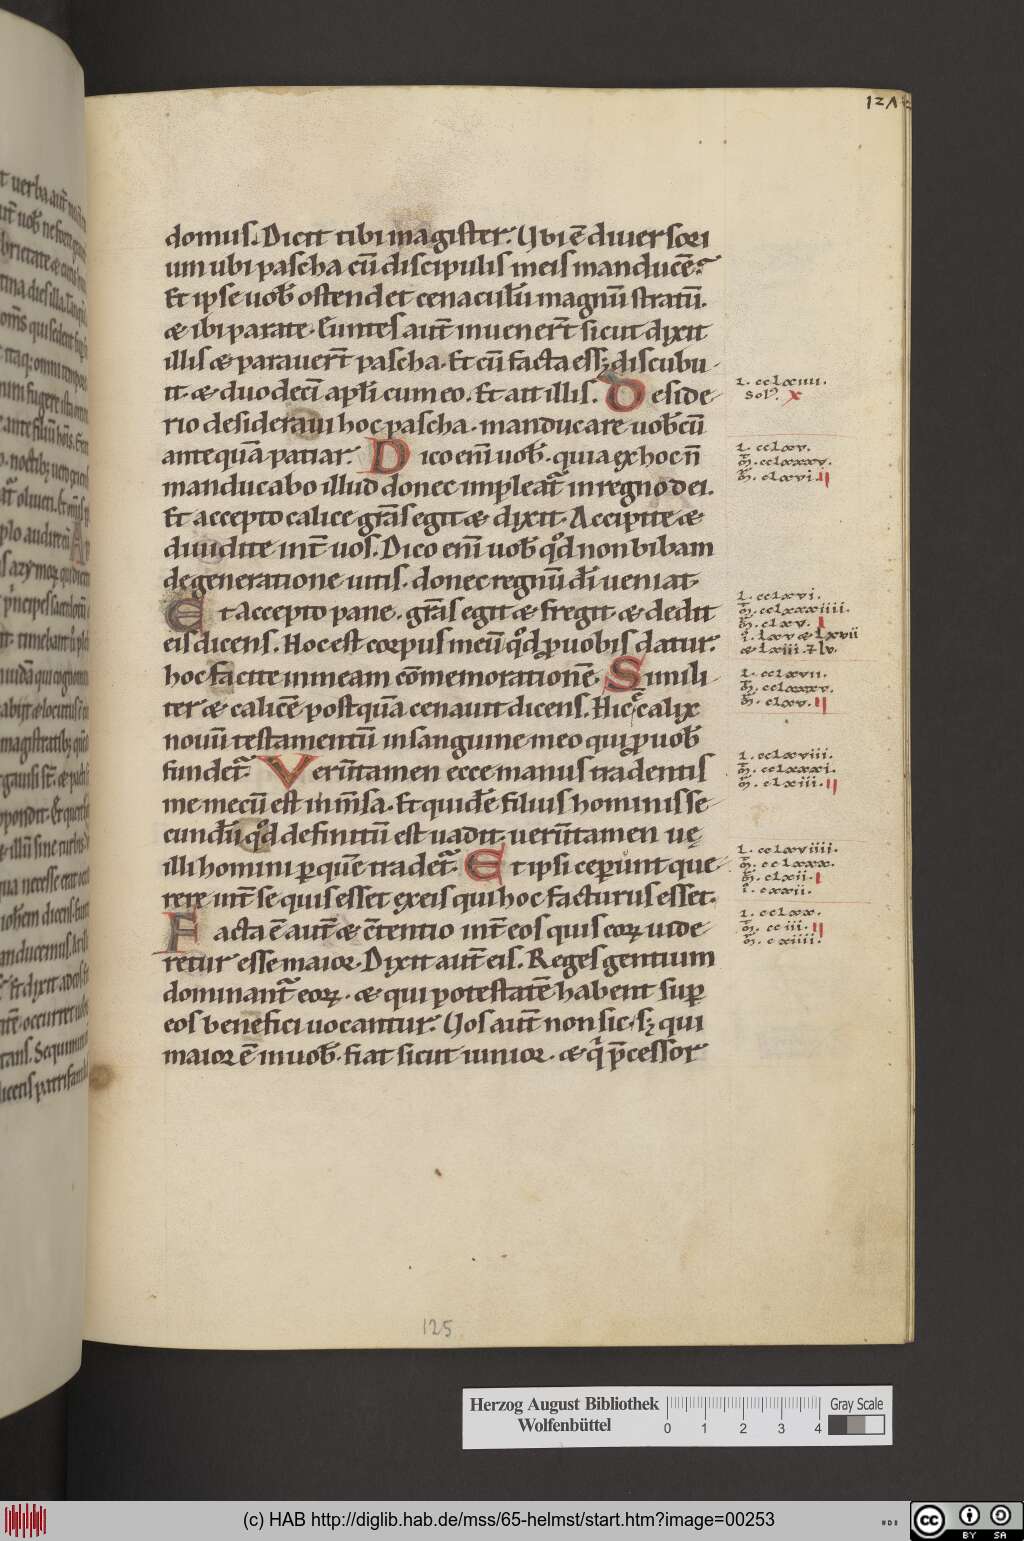 domus. Dicit tibi magister. Ubi ē diuersori
um ubi pascha cū discipulis meis manducē?
Et ipse uob̄ ostendet cenaculū magnū stratū.
& ibi parate. Euntes aut̄ inuener̄t sicut dixit
illis & parauer̄t pascha. Et cū facta esset discubu-
it. & duodecī apl̄i cum eo. Et ait illis. Deside-
rio desideraui hoc pascha. manducare uob̄cū
antequā patiar. Dico enī uob̄. quia ex hoc n̄
manducabo illud donec impleat̄ in regno dei.
Et accepto calice gr̄as egit & dixit. Accipite &
diuidite int̄ uos. Dico enī uob̄ qd̄ non bibam
de generatione uitis. donec regnū dī ueniat.
Et accepto pane. gr̄as egit & fregit. & dedit
eis dicens. Hoc est corpus meū qd̄ ꝓ uobis datur.
hoc facite in meam cōmemorationē. Simili-
ter & calicē postquā cenauit dicens. Hic ē calix
nouū testamentū in sanguine meo qui ꝓ uob̄
fundet̄. Verūtamen ecce manus tradentis
me mecū est in m̄sa. Et quidē filius hominis se-
cundū qd̄ definitū est uadit. uerūtamen uę
illi homini ꝑ quē tradet̄. Et ipsi ceperunt que-
rere int̄ se quis esset ex eis qui hoc facturus esset.
Facta ē aut̄ & c̄tentio int̄ eos quis eoꝝ uide-
retur esse maior. Dixit aut̄ eis. Reges gentium
dominant̄ eoꝝ. & qui potestatē habent suꝑ
eos benefici uocantur. Uos aut̄ non sic. sꝫ qui
maior ē in uob̄. fiat sicut iunior. & q̄ p̄cessor
l. cclxiiii.
Sol'. x
l. cclxv.
m̄. cclxxxv.
m̄. clxvi. II
l. cclxvi.
m̄. cclxxxiiii.
m̄. clxv. I
i. lxv & lxvii
& lxiii. 7 lv.
l. cclxvii.
m̄. cclxxxv.
m̄. clxv. II
l. cclxviii.
m̄. cclxxxi.
m̄. clxiii. II
l. cclxviiii.
m̄. cclxxx.
m̄. clxii. I
i. cxxii.
l. cclxx.
m̄. cciii. II
m̄. cxiiii.
125
Herzog August Bibliothek
Wolfenbüttel
0 1 2 3 4
Gray Scale
(c) HAB http://diglib.hab.de/mss/65-helmst/start.htm?image=00253
cc BY SA